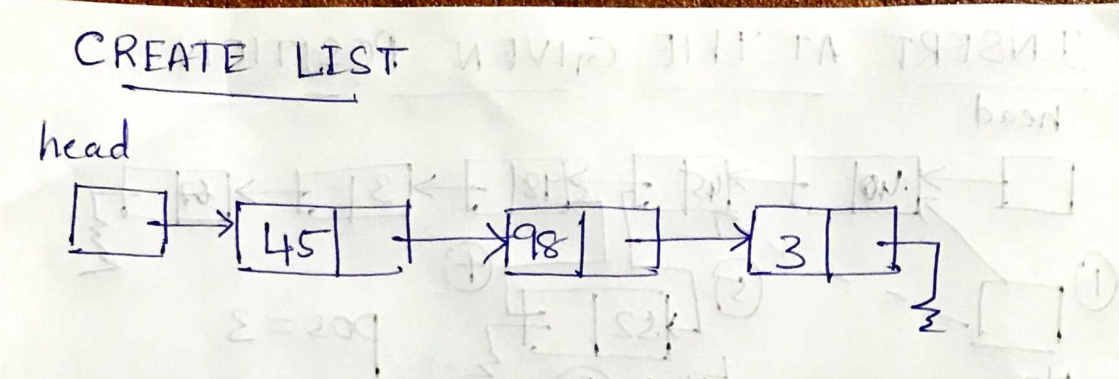 CREATE LIST
head
45 98 3